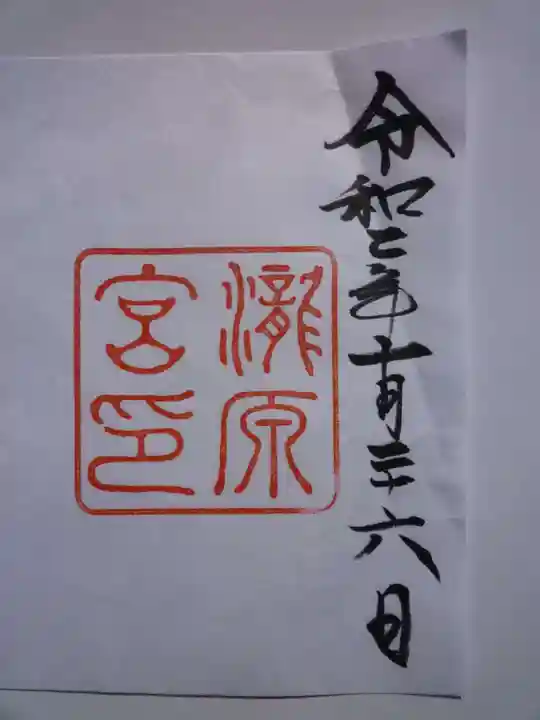 令和二年十月二十六日
瀧原
宮印